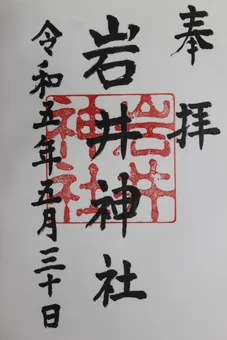 奉拝
岩井神社
岩井
神社
令和五年五月三十日